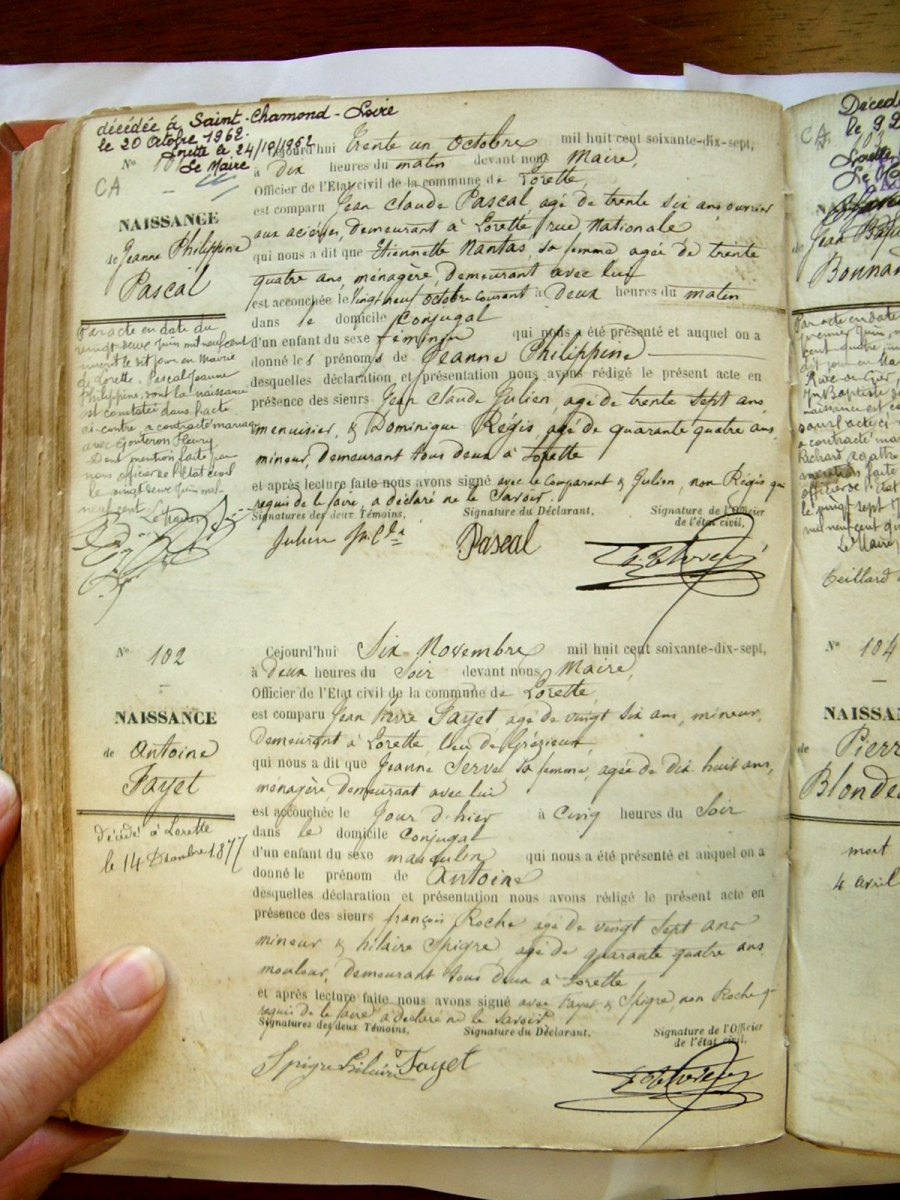 décédée à Saint-Chamond-Loire
le 20 Octobre 1962.
Lorette le 24/10/1962
Le Maire
CA
Nº
NAISSANCE
de Jeanne Philippine
Pascal
Par acte en date du
vingt deux juin mil neuf cent
inscrit le dit jour en Mairie
de Lorette, Pascal Jeanne
Philippine, dont la naissance
est constatée dans l'acte
ci-contre, a contracté mariage
avec Gouteron Fleury.
Dont mention faite par
nous officier de l'état civil
le vingt deux juin mil
neuf cent.
Cejourd'hui trente un Octobre mil huit cent soixante-dix-sept,
à Dix heures du matin devant nous Maire,
Officier de l'Etat civil de la commune de Lorette,
est comparu Jean Claude Pascal agé de trente six ans ouvrier
aux aciéries, demeurant à Lorette rue Nationale
qui nous a dit que Etiennette Nantas, sa femme agée de trente
quatre ans, ménagère, demeurant avec lui
est accouchée le vingt neuf octobre courant à Deux heures du matin
dans le domicile conjugal
d'un enfant du sexe féminin qui nous a été présenté et auquel on a
donné les prénoms de Jeanne Philippine
desquelles déclaration et présentation nous avons rédigé le présent acte en
présence des sieurs Jean Claude Julien, agé de trente sept ans,
menuisier, & Dominique Régis, agé de quarante quatre ans
mineur, demeurant tous deux à Lorette
et après lecture faite nous avons signé avec le Comparant & Julien, non Régis qui
requis de le faire, a déclaré ne le Savoir.
Signatures des deux Témoins, Signature du Déclarant, Signature de l'Officier
de l'état civil,
Julien Pascal
Nº 102
NAISSANCE
de Antoine
Fayet
décédé à Lorette
le 14 Décembre 1877
Cejourd'hui Six Novembre mil huit cent soixante-dix-sept,
à Deux heures du Soir devant nous Maire,
Officier de l'Etat civil de la commune de Lorette
est comparu Jean Pierre Fayet agé de vingt six ans, mineur,
demeurant à Lorette, lieu de Grézieux,
qui nous a dit que Jeanne Serve sa femme, agée de Dix huit ans,
ménagère, demeurant avec lui
est accouchée le Jour d'hier à Cinq heures du Soir
dans le domicile conjugal
d'un enfant du sexe masculin qui nous a été présenté et auquel on a
donné le prénom de Antoine
desquelles déclaration et présentation nous avons rédigé le présent acte en
présence des sieurs françois Roche agé de vingt sept ans
mineur & hilaire Spigre, agé de quarante quatre ans
mouleur, demeurant tous deux à Lorette
et après lecture faite nous avons signé avec Fayet & Spigre, non Roche q
requis de le faire a déclaré ne le savoir
Signatures des deux Témoins, Signature du Déclarant, Signature de l'Officier
de l'état civil,
Spigre hilaire Fayet
CA
Jean
Bonnan
Nº 104
NAISSAN
de Pierr
Blonde
mort
4 avril